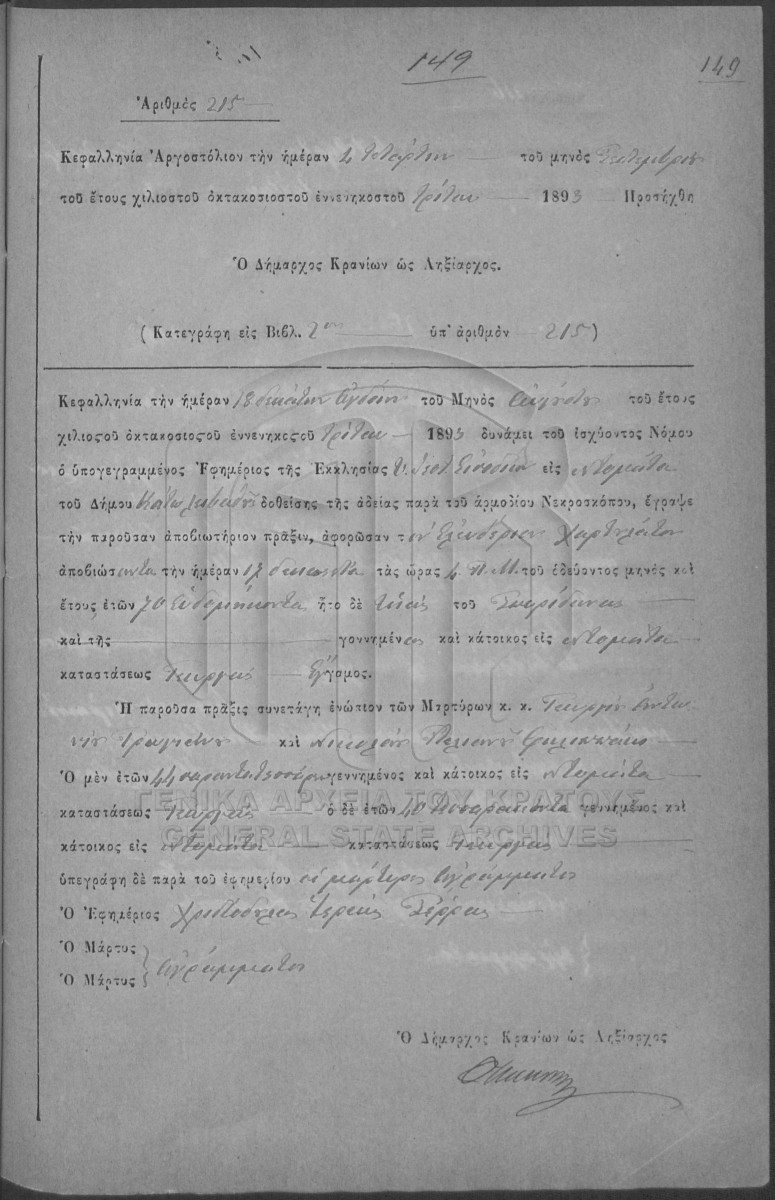 149
149
Ἀριθμὸς 215
Κεφαλληνία Ἀργοστόλιον τὴν ἡμέραν 4 τετάρτην τοῦ μηνὸς Σεπτεμβρίου
τοῦ ἔτους χιλιοστοῦ ὀκτακοσιοστοῦ ἐννενηκοστοῦ τρίτου 1893 Προσήχθη
Ὁ Δήμαρχος Κρανίων ὡς Ληξίαρχος.
(Κατεγράφη εἰς Βιβλ. 2ον ὑπ' ἀριθμὸν 215)
Κεφαλληνία τὴν ἡμέραν 18 δεκάτην ὀγδόην τοῦ Μηνὸς Αὐγούστου τοῦ ἔτους
χιλιοςοῦ ὀκτακοσιοςοῦ ἐννενηκοςοῦ τρίτου 1893 δυνάμει τοῦ ἰσχύοντος Νόμου
ὁ ὑπογεγραμμένος Ἐφημέριος τῆς Ἐκκλησίας εἰς Ντομάτα
τοῦ Δήμου δοθείσης τῆς ἀδείας παρὰ τοῦ ἁρμοδίου Νεκροσκόπου, ἔγραψε
τὴν παροῦσαν ἀποβιωτήριον πρᾶξιν, ἀφορῶσαν τὸν Ἐλευθέριον Χαρτουλάτον
ἀποβιώσαντα τὴν ἡμέραν 17 τὰς ὥρας 4 Π.Μ. τοῦ ὁδεύοντος μηνὸς καὶ
ἔτους ἐτῶν 70 ἑβδομήκοντα ἦτο δὲ υἱός τοῦ Σπυρίδωνος
καὶ τῆς γεννημένος καὶ κάτοικος εἰς Ντομάτα
καταστάσεως γεωργός ἔγγαμος.
Ἡ παροῦσα πρᾶξις συνετάγη ἐνώπιον τῶν Μαρτύρων κ. κ. Γεωργίου
καὶ Νικολάου
Ὁ μὲν ἐτῶν 44 σαράντα τεσσάρων γεννημένος καὶ κάτοικος εἰς Ντομάτα
καταστάσεως γεωργός ὁ δὲ ἐτῶν 40 τεσσαράκοντα γεννημένος καὶ
κάτοικος εἰς Ντομάτα καταστάσεως γεωργός
ὑπεγράφη δὲ παρὰ τοῦ ἐφημερίου οἱ μάρτυρες ἀγράμματοι
Ὁ Ἐφημέριος Χριστόδουλος ἱερεὺς
Ὁ Μάρτυς
Ὁ Μάρτυς ἀγράμματοι
Ὁ Δήμαρχος Κρανίων ὡς Ληξίαρχος
ΓΕΝΙΚΑ ΑΡΧΕΙΑ ΤΟΥ ΚΡΑΤΟΥΣ
GENERAL STATE ARCHIVES